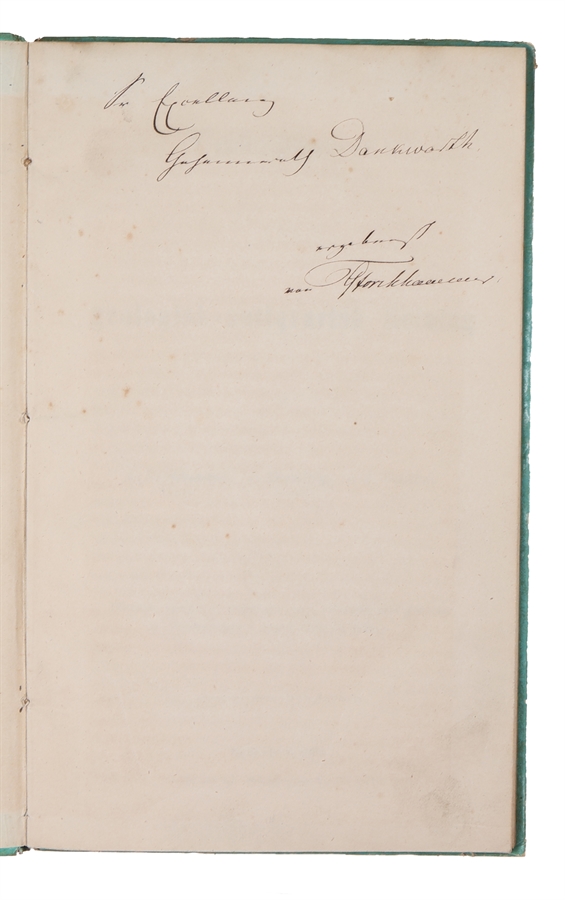 Sr Excellenz
Geheimerath Dankwarth.
ergebenst
von Forchhammer.